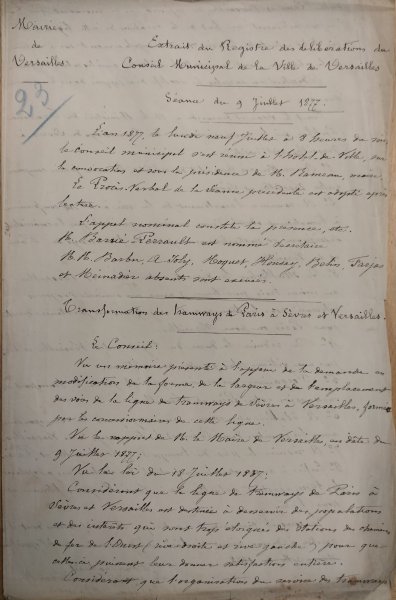 Mairie
de
Versailles
23
Extrait du Registre des délibérations du
Conseil Municipal de la Ville de Versailles
Séance du 9 Juillet 1877.
L'an 1877, le lundi neuf Juillet à 8 heures du soir,
le Conseil municipal s'est réuni à l'hotel de Ville, sur
la convocation et sous la présidence de M. Rameau, maire.
Le Procès-Verbal de la Séance précédente est adopté après
lecture.
L'appel nominal constate la présence, etc.
M. Barrié Perrault est nommé Secrétaire
M.M. Barbu, A. Joly, Hoquet, Houssay, Belin,
et Meinadier absents sont excusés.
Transformation des tramways de Paris à Sèvres et Versailles.
Le Conseil:
Vu un mémoire présenté à l'appui de la demande en
modification de la forme, de la largeur et de l'emplacement
des voies de la ligne de tramways de Sèvres à Versailles, formée
par les concessionnaires de cette ligne.
Vu le rapport de M. le Maire de Versailles, en date du
9 Juillet 1877;
Vu la loi du 18 Juillet 1837;
Considérant que la ligne de tramways de Paris à
Sèvres et Versailles est destinée à desservir des populations
et des intérêts qui sont trop éloignés des stations des chemins
de fer de l'Ouest (rive droite et rive gauche) pour que
celles-ci puissent leur donner satisfaction entière.
Considérant que l'organisation du service des tramways